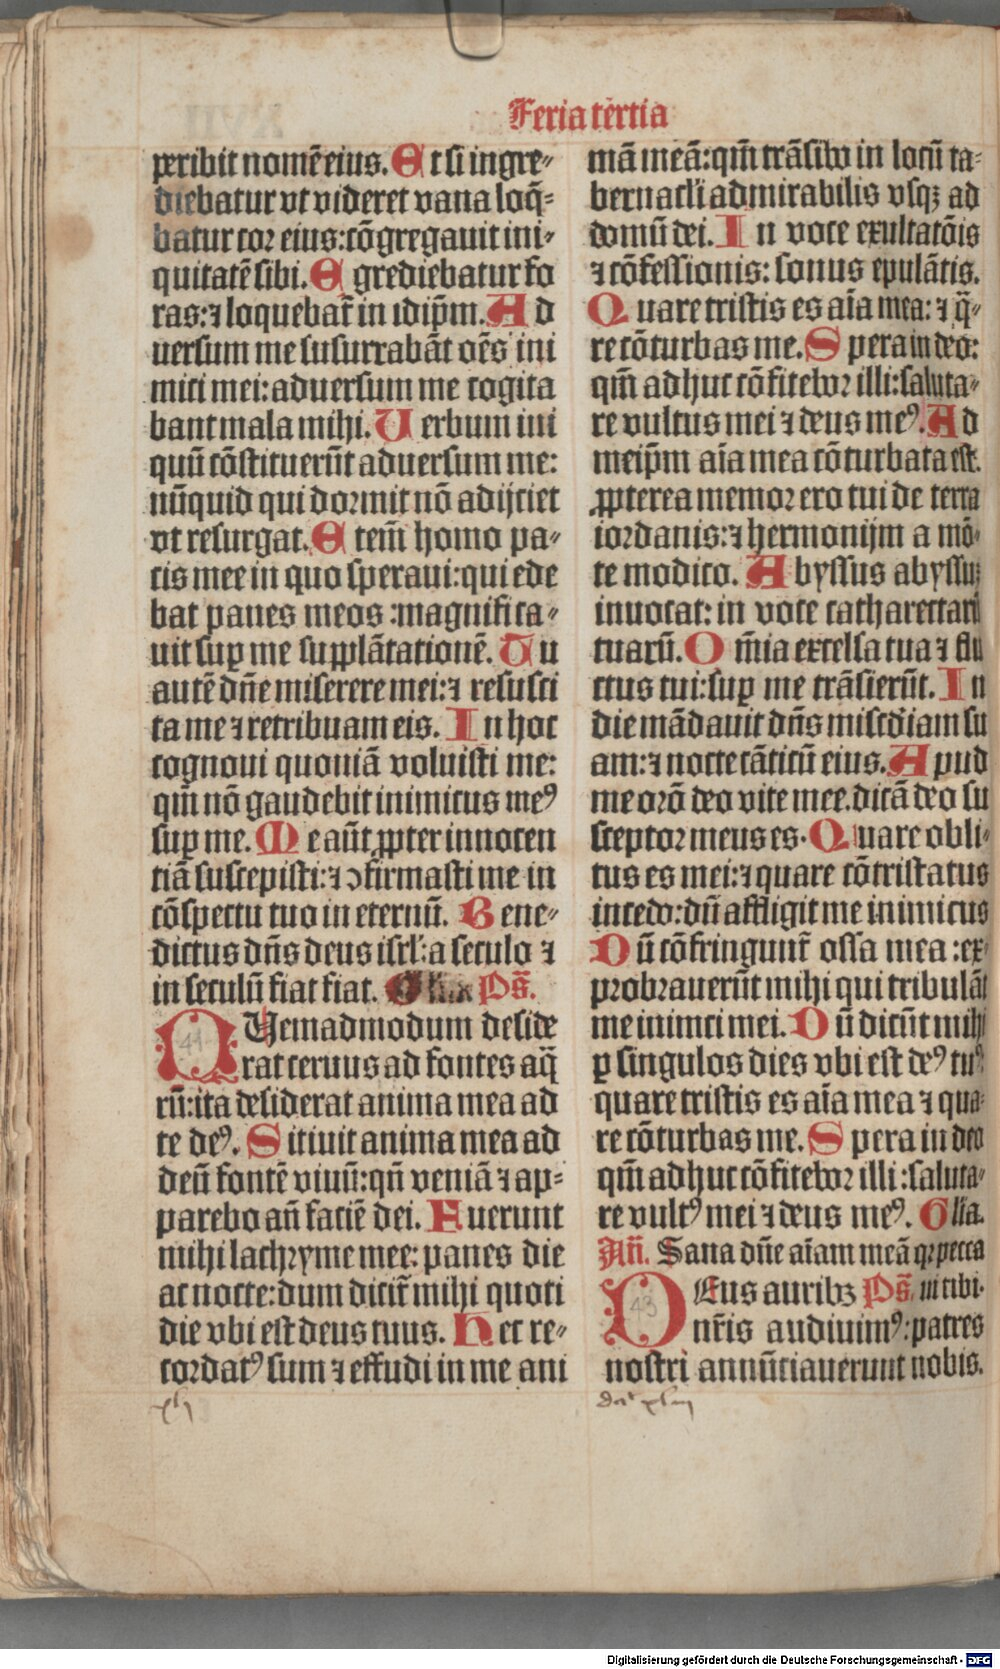 Feria tertia
peribit nomē eius. Et si ingre-
diebatur vt videret vana loq̄-
batur cor eius: cōgregauit ini-
quitatē sibi. Egrediebatur fo
ras: ⁊ loquebat̄ in idip̄m. Ad
uersum me susurrabāt oēs ini
mici mei: aduersum me cogita
bant mala mihi. Uerbum ini
quū cōstituerūt aduersum me:
nūquid qui dormit nō adijciet
vt resurgat. Etem̄ homo pa-
cis mee in quo speraui: qui ede
bat panes meos: magnifica-
uit suꝑ me supplātationē. Tu
autē dn̄e miserere mei: ⁊ resusci
ta me ⁊ retribuam eis. In hoc
cognoui quoniā voluisti me:
qm̄ nō gaudebit inimicus meꝰ
suꝑ me. Me aūt ꝓpter innocen
tiā suscepisti: ⁊ ↄfirmasti me in
cōspectu tuo in eternū. Bene-
dictus dn̄s deus isrl̄: a seculo ⁊
in seculū fiat fiat. Ps̄.
QUemadmodum deside
rat ceruus ad fontes aq̄
41
rū: ita desiderat anima mea ad
te deꝰ. Sitiuit anima mea ad
deū fontē viuū: qn̄ veniā ⁊ ap-
parebo an̄ faciē dei. Fuerunt
mihi lachryme mee: panes die
ac nocte: dum dicit̄ mihi quoti
die vbi est deus tuus. Hec re-
cordatꝰ sum ⁊ effudi in me ani
xlj
mā meā: qm̄ trāsibo in locū ta-
bernacl̄i admirabilis vsqꝫ ad
domū dei. In voce exultatōis
⁊ cōfessionis: sonus epulātis.
Quare tristis es aīa mea: ⁊ q̄-
re cōturbas me. Spera in deo:
qm̄ adhuc cōfitebor illi: saluta-
re vultus mei ⁊ deus meꝰ. Ad
meip̄m aīa mea cōturbata est.
ꝓpterea memor ero tui de terra
iordanis: ⁊ hermonijm a mō-
te modico. Abyssus abyssuꝫ
inuocat: in voce cataractarū
tuarū. Om̄ia excelsa tua ⁊ flu
ctus tui: suꝑ me trāsierūt. In
die mādauit dn̄s miscd̄iam su
am: ⁊ nocte cāticū eius. Apud
me orō deo vite mee. dicā deo su
sceptor meus es. Quare obli-
tus es mei: ⁊ quare cōtristatus
incedo: dū affligit me inimicus
Dū cōfringunt̄ ossa mea: ex-
probrauerūt mihi qui tribulāt
me inimici mei. Dū dicūt mihi
ꝑ singulos dies vbi est deꝰ tuꝰ
quare tristis es aīa mea ⁊ qua-
re cōturbas me. Spera in deo
qm̄ adhuc cōfitebor illi: saluta-
re vultꝰ mei ⁊ deus meꝰ. Gl̄ia.
An̄. Sana dn̄e aīam meā qꝛ pecca
DEus auribꝫ Ps̄. ui tibi.
43
nr̄is audiuimꝰ: patres
nostri annūciauerunt nobis.
Digitalisierung gefördert durch die Deutsche Forschungsgemeinschaft - DFG